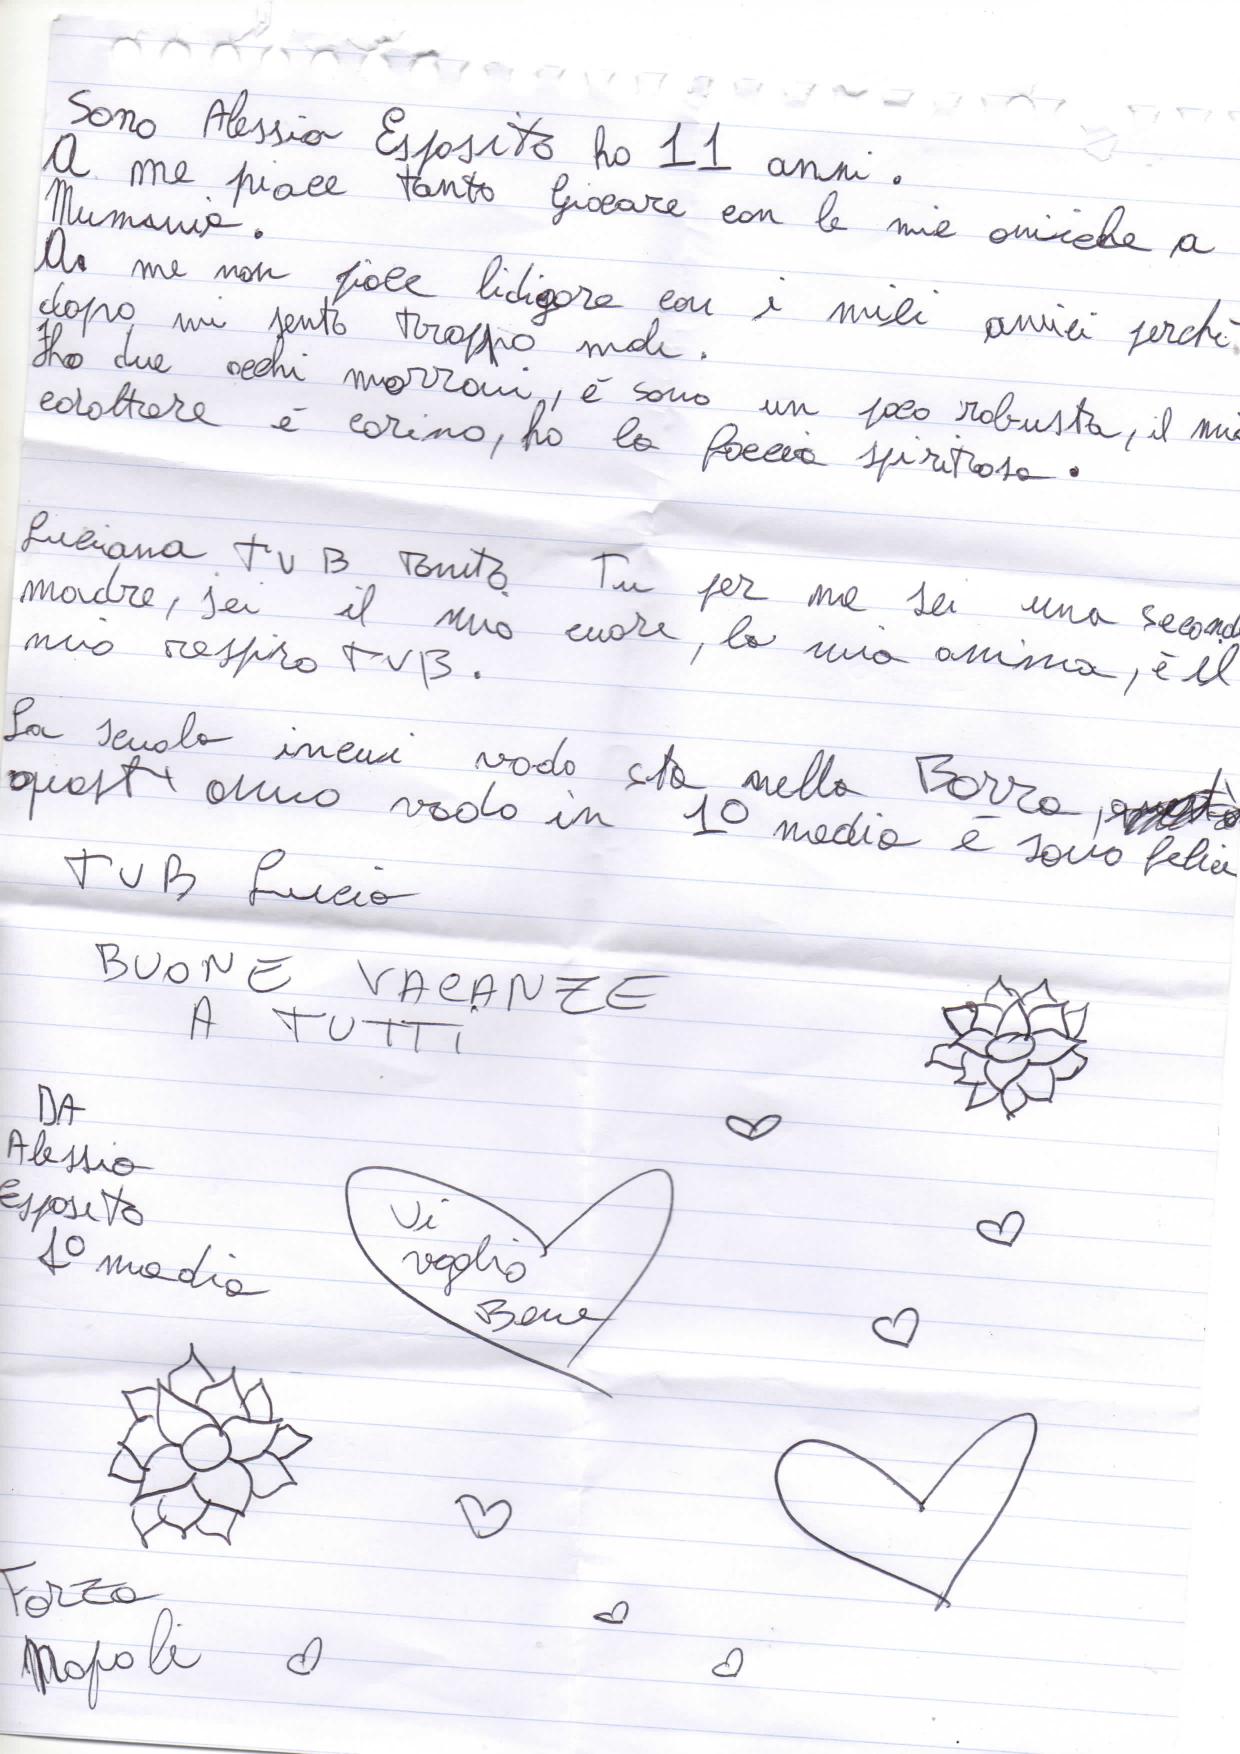 Sono Alessia Esposito ho 11 anni.
A me piace tanto Giocare con le mie amiche a
Mumania.
A me non piace lidigare con i miei amici perchè
dopo mi sento troppo male.
Ho due occhi marroni, è sono un poco robusta, il mio
carattere è carino, ho la faccia spiritosa.
Luciana TVB tanto Tu per me sei una second
madre, sei il mio cuore, la mia anima, è il
mio respiro TVB.
La scuola incui vado sta nella Barra,
quest anno vado in 1° media è sono felice
TVB Lucia
BUONE VACANZE
A TUTTI
DA
Alessia
Esposito
1° media
Vi
voglio
Bene
Forza
Napoli